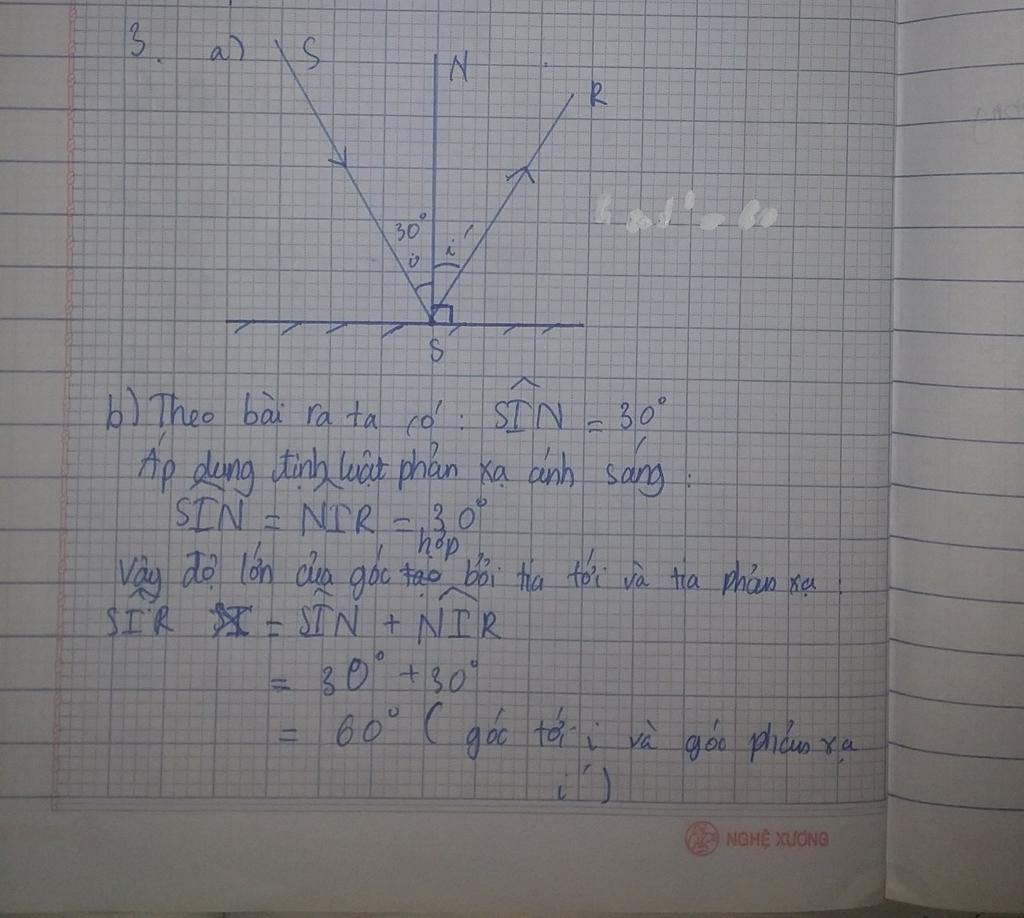 3. a) S N R
30°
i i'
S
b) Theo bài ra ta có: SIN = 30°
Áp dụng định luật phản xạ ánh sáng:
SIN = NIR = 30°
hợp
Vậy độ lớn của góc tạo bởi tia tới và tia phản xạ:
SIR = SIN + NIR
= 30° + 30°
= 60° ( góc tới i và góc phản xạ
i')
NGHỆ XƯƠNG